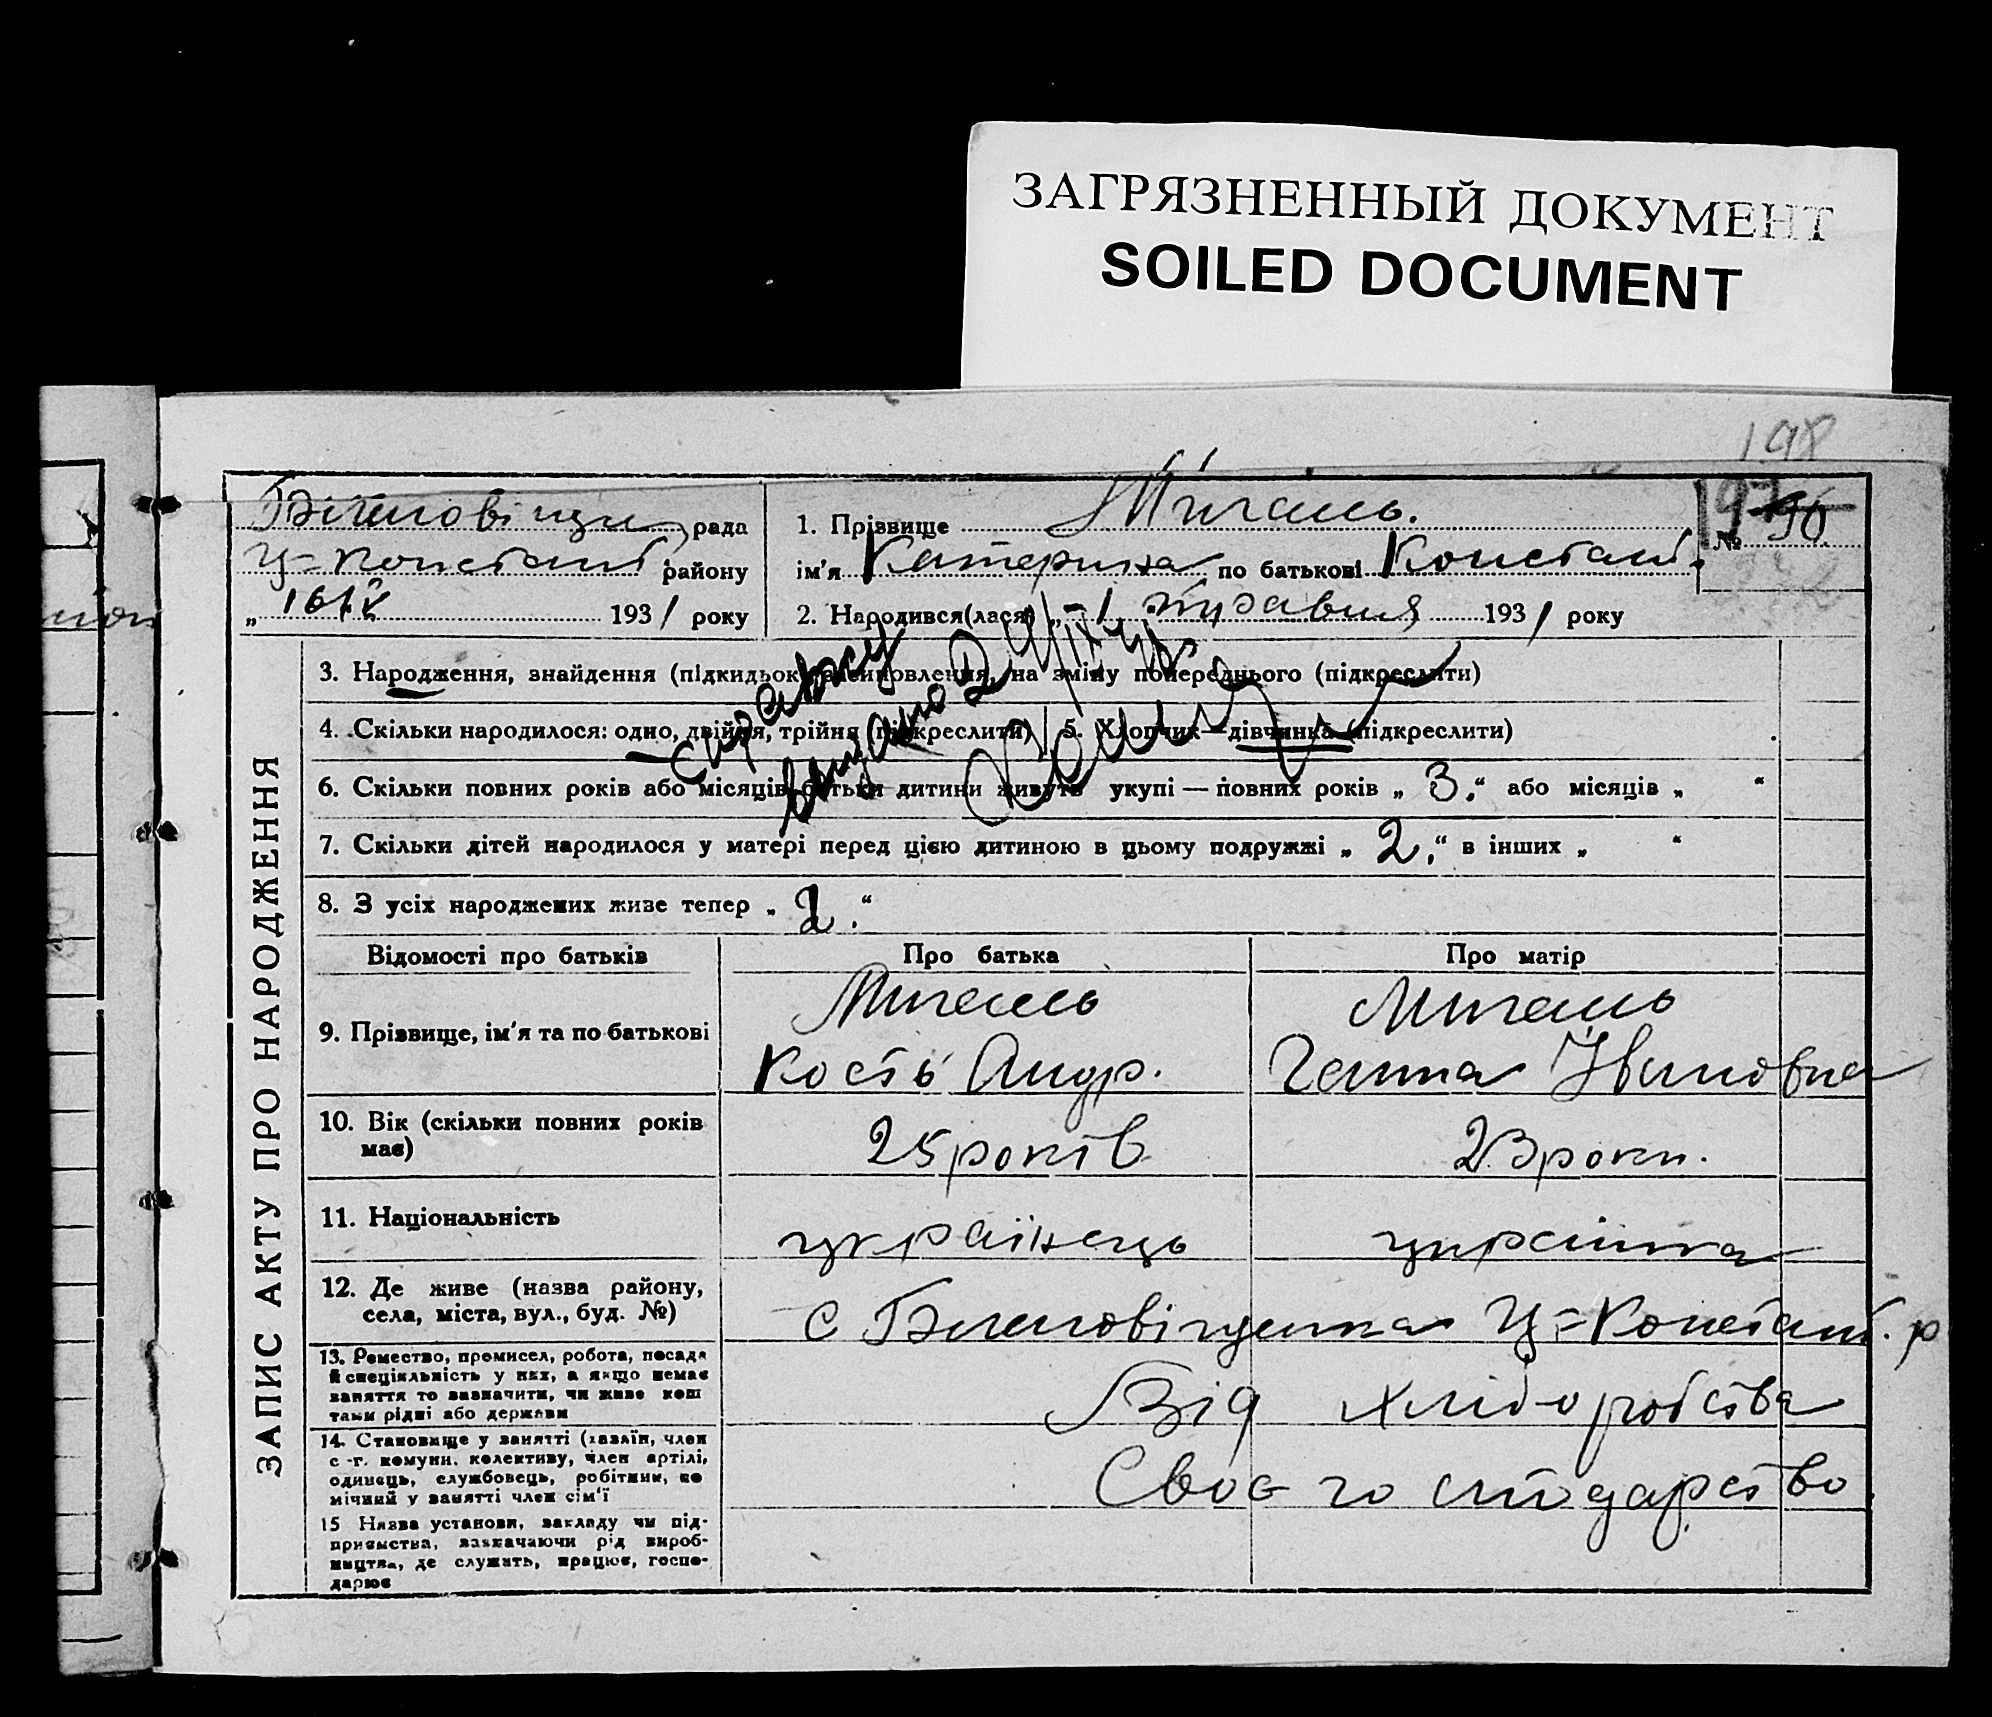 ЗАГРЯЗНЕННЫЙ ДОКУМЕНТ
SOILED DOCUMENT
198
197
№ 90
рада
Ц=Констант. району
„ 16/V 1931 року
1. Прізвище Мигаль.
ім'я Катерина по батькові Констант.
2. Народився(лася) „ 1 травня 1931 року
ЗАПИС АКТУ ПРО НАРОДЖЕННЯ
3. Народження, знайдення (підкидьок), всиновлення, на зміну попереднього (підкреслити)
4. Скільки народилося: одно, двійня, трійня (підкреслити)
5. Хлопчик—дівчинка (підкреслити)
справку
видано
6. Скільки повних років або місяців батьки дитини живуть укупі — повних років „ 3. “ або місяців „ “
7. Скільки дітей народилося у матері перед цією дитиною в цьому подружжі „ 2. “ в інших „ “
8. З усіх народжених живе тепер „ 2. “
Відомості про батьків
Про батька
Про матір
9. Прізвище, ім'я та по батькові
Мигаль
Кость Андр.
Мигаль
Ганна Івановна
10. Вік (скільки повних років має)
25 років
23 роки.
11. Національність
українець
українка
12. Де живе (назва району,
села, міста, вул., буд. №)
с Ц=Констант. р
13. Ремество, промисел, робота, посада
й спеціяльність у них, а якщо немає
заняття то зазначити, чи живе кош
тами рідні або держави
Від хліборобства
14. Становище у занятті (хазяїн, член
с.-г. комуни, колективу, член артілі,
одинець, службовець, робітник, по
мічний у занятті член сім'ї
Своє господарство
15 Назва установи, закладу чи під-
приємства, зазначаючи рід вироб-
ництва, де служить, працює, госпо-
дарює